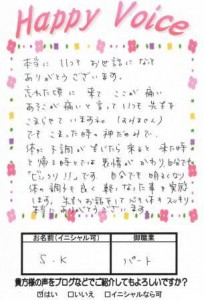 Happy Voice
本当に いつも お世話になり
ありがとうございます。
忘れた頃に来て ここが痛い
あそこが痛いと言って いつも先生を
こまらせています
でも こまった時の 神だのみで、
体に不調が生じたら 来ると 来た時
と帰る時とでは 表情が かわり 自分でも
びっくり!! です 自分でも 明るくなり
体の調子も良く 軽くなった事を実感
します。先生とお話をして 心も体も スッキリ
ありがとうございます
お名前(イニシャル可)
御職業
S.K
パート
貴方様の声をブログなどでご紹介してもよろしいですか?
☑はい □いいえ □イニシャルなら可